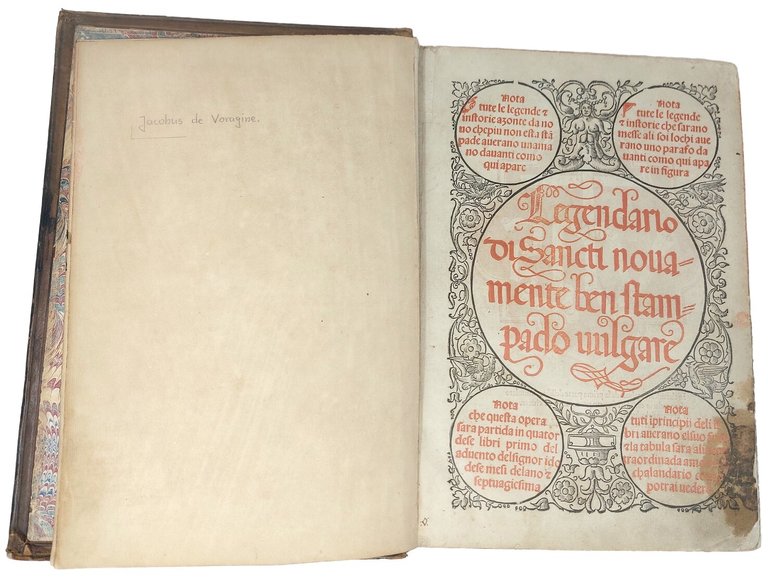 Jacobus de Voragine.
Nota
tute le legende &
instorie azonte da no
uo chepiu non esta stã
pade auerano una ma
no dauanti como
qui apare
Nota
tute le legende
& instorie che sarano
messe ali soi lochi aue
rano uno parafo da
uanti como qui apa
re in figura
Legendario
di Sancti noua-
mente ben stam-
pado uulgare
Nota
che questa opera
sara partida in quator
dese libri primo del
aduento delsignor ido
dese mesi delano &
septuagiesima
Nota
tuti i principii deli li
bri auerano el suo
& la tabula sara
traordinada
chalandario
potrai uedere